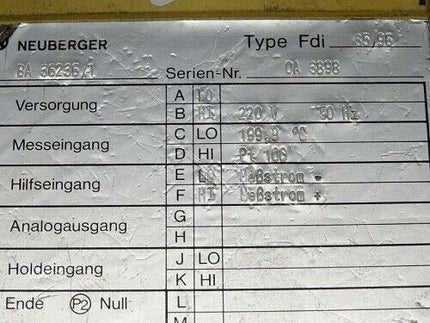 NEUBERGER Type Fdi 35/96
BA 36236/1 Serien-Nr. OA 3898
Versorgung A LO
B HI 220 V 50 Hz
Messeingang C LO 199.9 °C
D HI Pt 100
Hilfseingang E LO Meßstrom -
F HI Meßstrom +
Analogausgang G
H
Holdeingang J LO
K HI
Ende P2 Null L
M